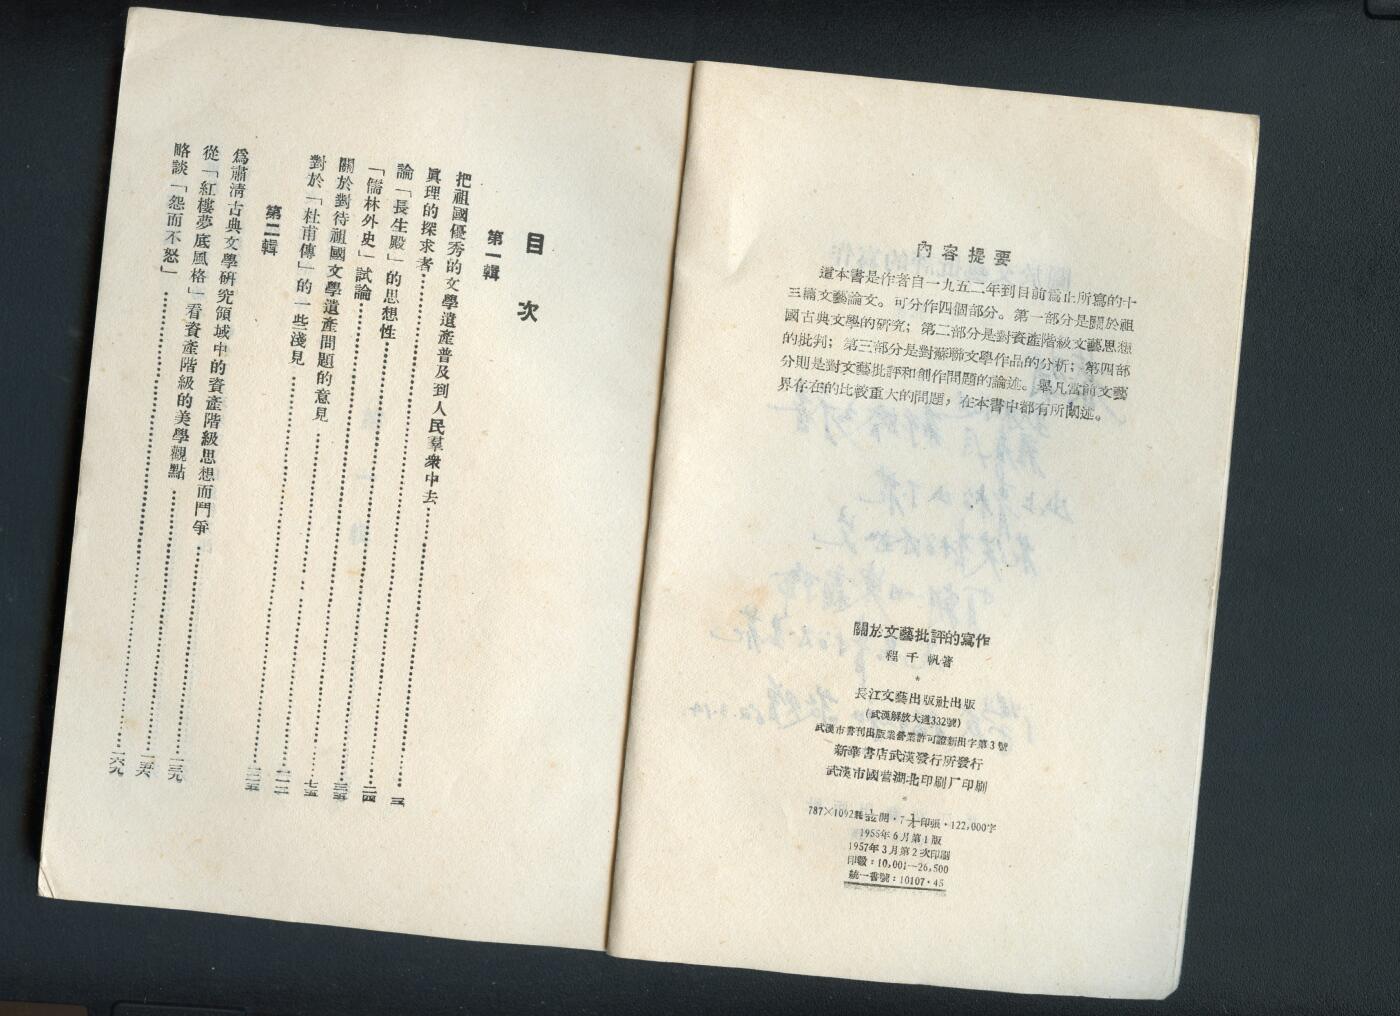 內容提要
這本書是作者自一九五二年到目前爲止所寫的十
三篇文藝論文。可分作四個部分。第一部分是關於祖
國古典文學的研究；第二部分是對資產階級文藝思想
的批判；第三部分是對蘇聯文學作品的分析；第四部
分則是對文藝批評和創作問題的論述。舉凡當前文藝
界存在的比較重大的問題，在本書中都有所闡述。
關於文藝批評的寫作
程千帆著
*
長江文藝出版社出版
(武漢解放大道332號)
武漢市書刊出版業營業許可證新出字第3號
新華書店武漢發行所發行
武漢市國營湖北印刷厂印刷
*
787×1092耗1/32開·7 3/4印張·122,000字
1955年6月第1版
1957年3月第2次印刷
印數：10,001—26,500
統一書號：10107·45
目次
第一輯
把祖國優秀的文學遺產普及到人民羣衆中去……三
眞理的探求者……二四
論「長生殿」的思想性……三五
「儒林外史」試論……七五
關於對待祖國文學遺產問題的意見……一一二
對於「杜甫傳」的一些淺見……一二五
第二輯
爲肅淸古典文學硏究領域中的資產階級思想而鬥爭……一三九
從「紅樓夢底風格」看資產階級的美學觀點……一五六
略談「怨而不怒」……一六九